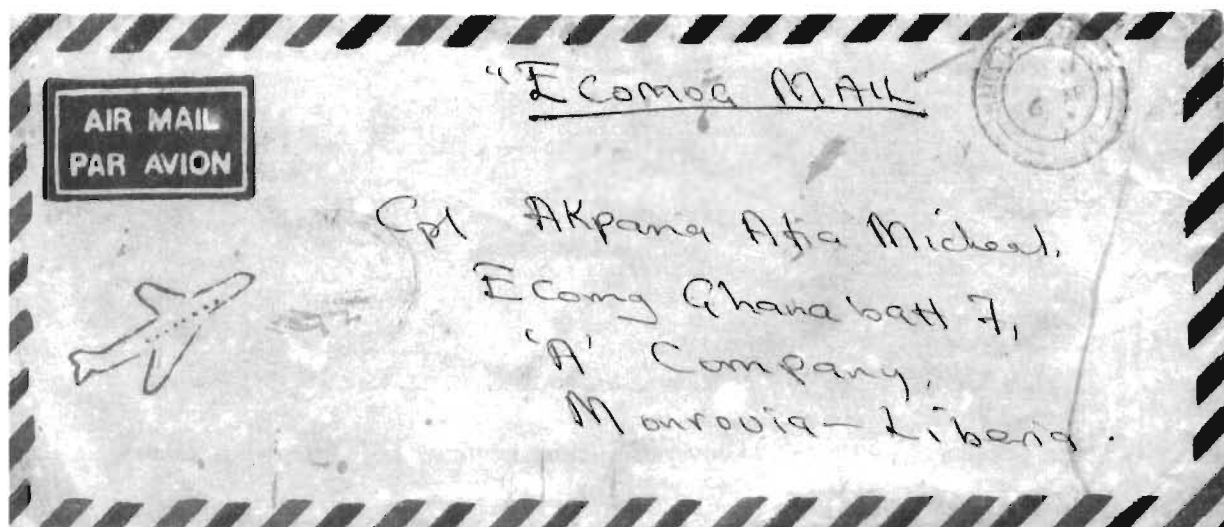 AIR MAIL
PAR AVION
"ECOMOG MAIL"
Cpl AKpana Afia Micheal,
Ecomg Ghanabatt 7,
'A' Company,
Monrovia - Liberia.
6